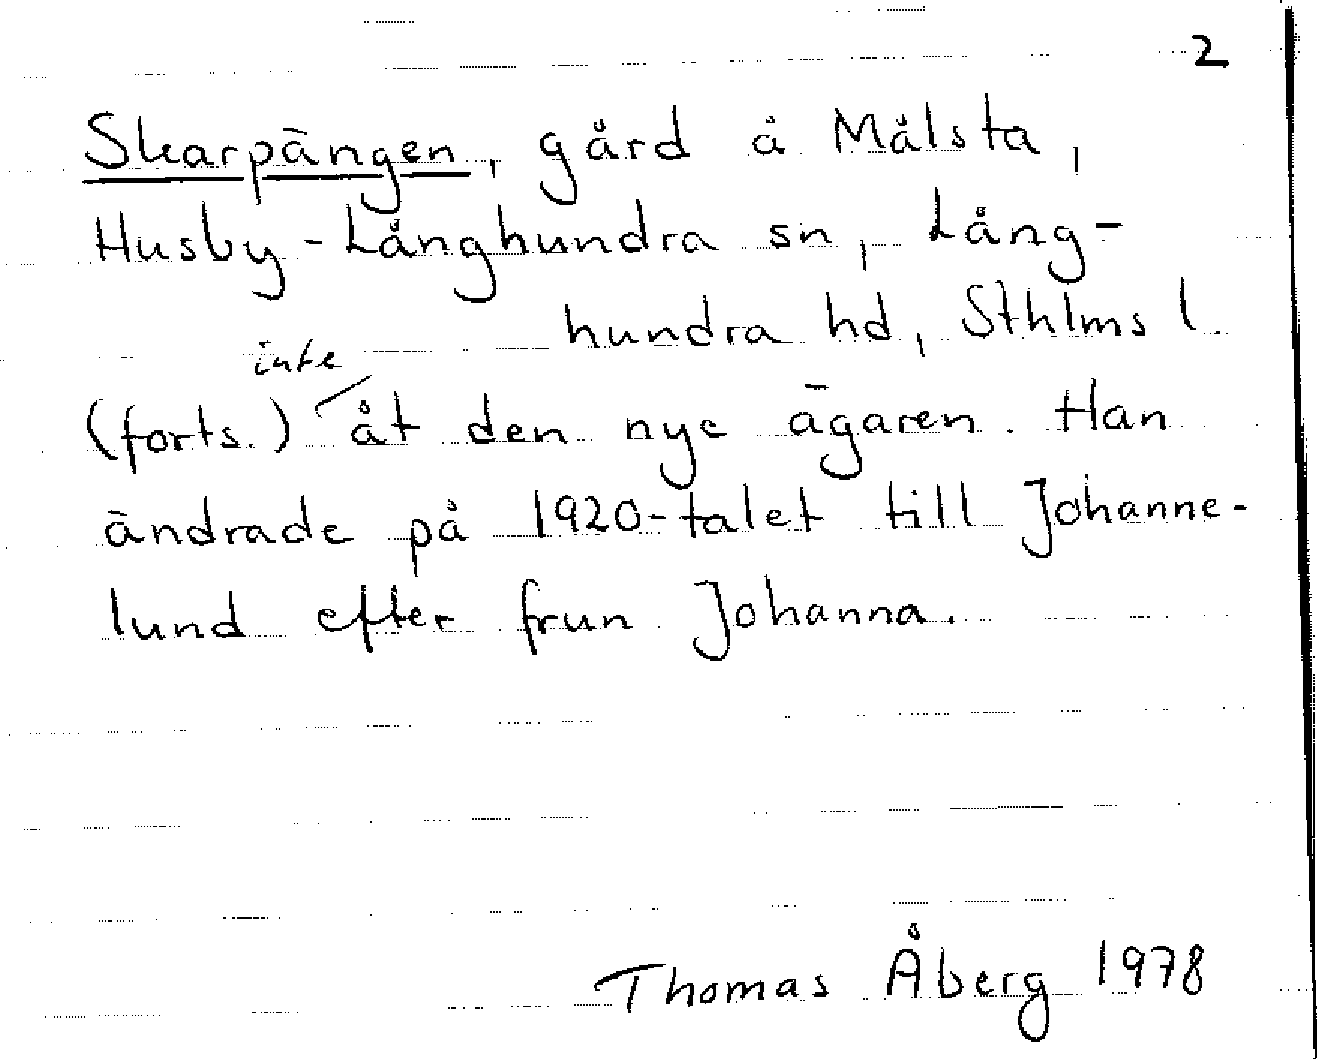 2
Skarpängen, gård å Målsta,
Husby-Långhundra sn, Lång-
hundra hd, Sthlms l.
inte
(forts.) åt den nye ägaren. Han
ändrade på 1920-talet till Johanne-
lund efter frun Johanna.
Thomas Åberg 1978